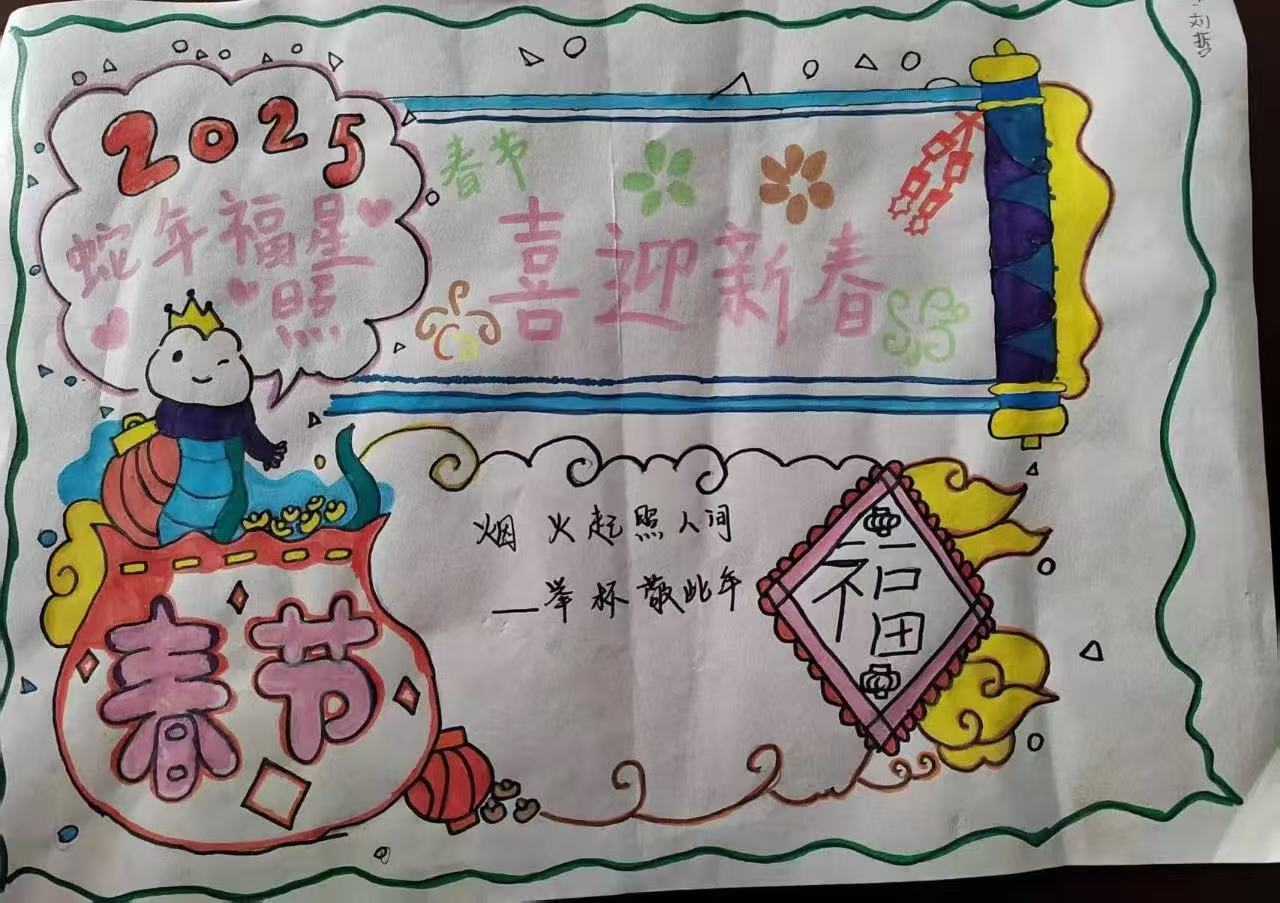 刘哲
2025
蛇年福星
照
春节
喜迎新春
烟火起照人间
—举杯敬此年
福
春节